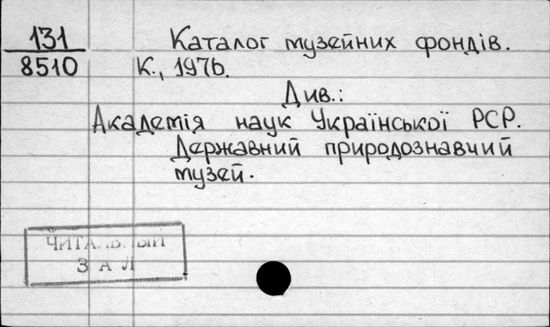 131
8510
Каталог музейних фондів.
К., 1976.
Див.:
Академія наук Української РСР.
Державний природознавчий
музей.
ЧИТАЛЬНЫЙ
ЗАЛ